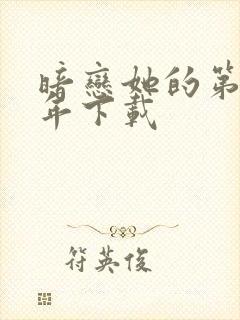 暗戀她的第
年下載
符英俊